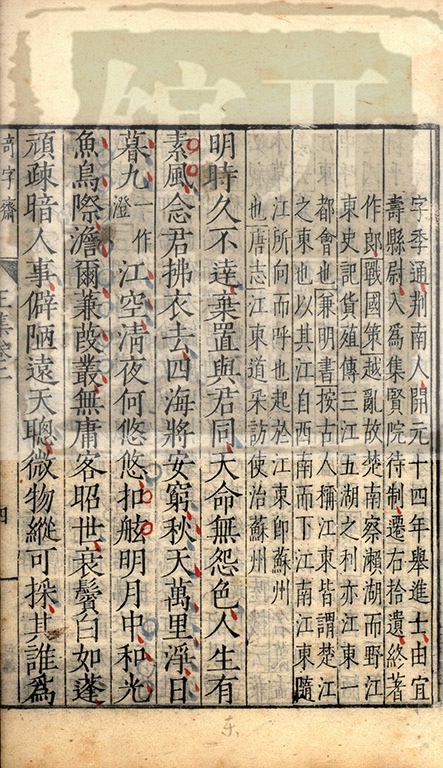 字季通荆南人開元十四年舉進士由宜
壽縣尉入為集賢院待制遷右拾遺終著
作郎戰國策越亂故楚南察瀨湖而野江
東史記貨殖傳三江五湖之利亦江東一
都會也兼明書按古人稱江東皆謂楚江
之東也以其江自西南而下江南江東隨
江所向而呼也起於江東卽蘇州
也唐志江東道采訪使治蘇州
明時久不達棄置與君同天命無怨色人生有
素風念君拂衣去四海將安窮秋天萬里淨日
暮九澄一作江空清夜何悠悠扣舷明月中和光
魚鳥際澹爾蒹葭叢無庸客昭世衰鬢白如蓬
頑疎暗人事僻陋遠天聰微物縱可採其誰為
奇字齋
王集卷二
四